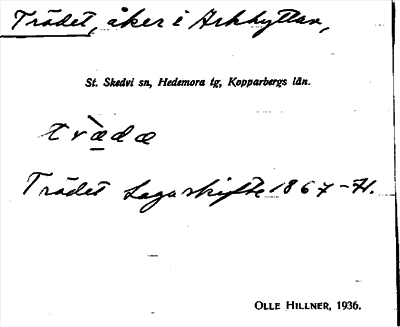 Trädet, åker i Arkhyttan,
St. Skedvi sn, Hedemora tg, Kopparbergs län.
trædæ
Trädet Laga skifte 1867-71.
OLLE HILLNER, 1936.